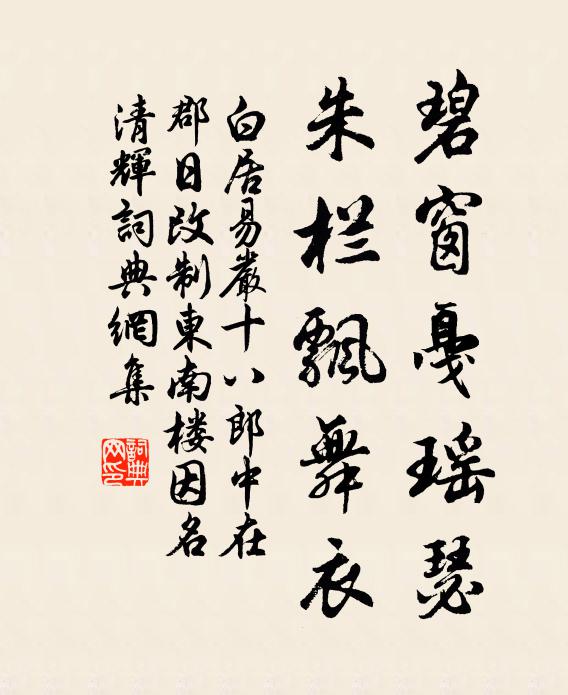 碧窗戛瑶瑟
朱栏飘舞衣
白居易嚴十八郎中在
郡日改制東南楼因名
清輝詞典網集
詞典网印